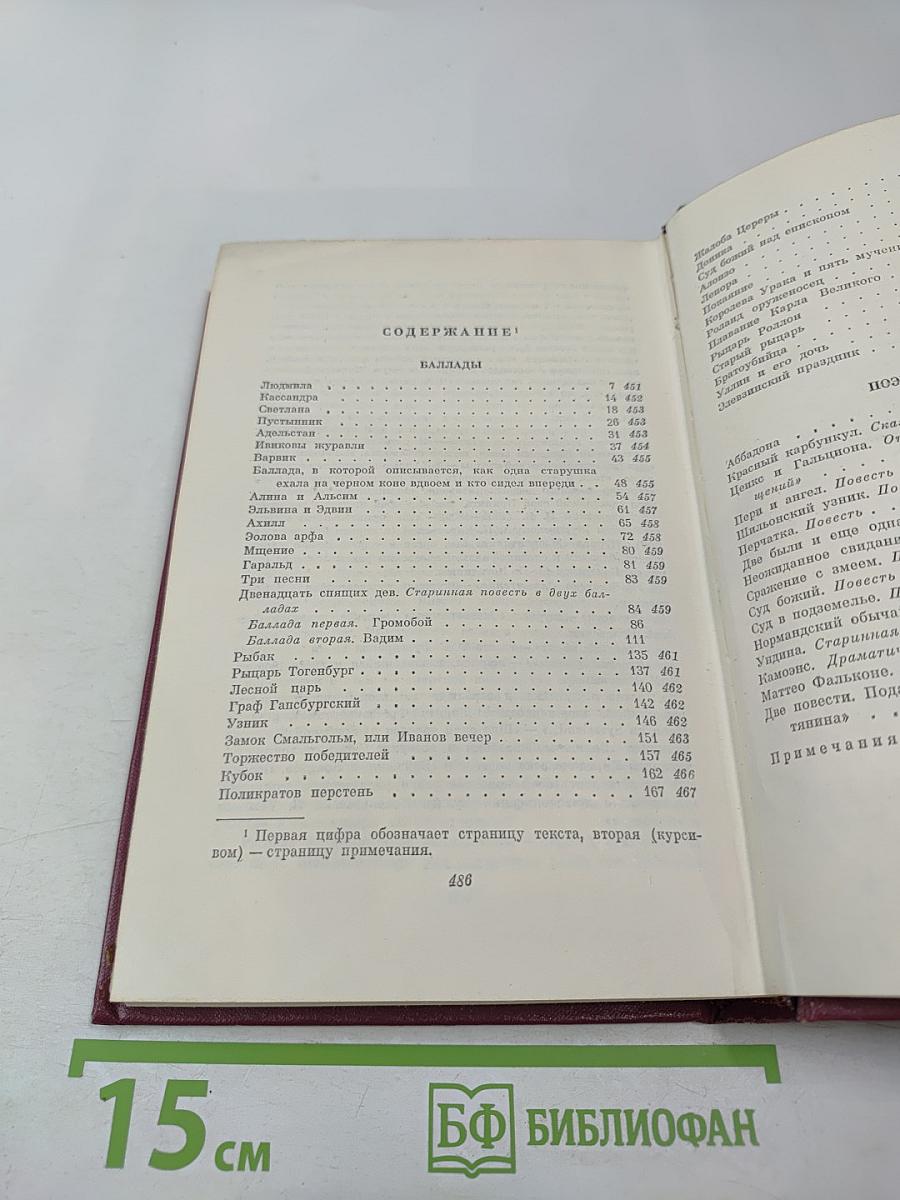 СОДЕРЖАНИЕ¹
БАЛЛАДЫ
Людмила . . . . . . . . . . . . . . . . . . . 7 451
Кассандра . . . . . . . . . . . . . . . . . . 14 452
Светлана . . . . . . . . . . . . . . . . . . 18 453
Пустынник . . . . . . . . . . . . . . . . . . 26 453
Адельстан . . . . . . . . . . . . . . . . . . 31 453
Ивиковы журавли . . . . . . . . . . . . . . . 37 454
Варвик . . . . . . . . . . . . . . . . . . . 43 455
Баллада, в которой описывается, как одна старушка
ехала на черном коне вдвоем и кто сидел впереди . . 48 455
Алина и Альсим . . . . . . . . . . . . . . . 54 457
Эльвина и Эдвин . . . . . . . . . . . . . . . 61 457
Ахилл . . . . . . . . . . . . . . . . . . . . 65 458
Эолова арфа . . . . . . . . . . . . . . . . . 72 458
Мщение . . . . . . . . . . . . . . . . . . . 80 459
Гаральд . . . . . . . . . . . . . . . . . . . 81 459
Три песни . . . . . . . . . . . . . . . . . . 83 459
Двенадцать спящих дев. Старинная повесть в двух бал-
ладах . . . . . . . . . . . . . . . . . . 84 459
Баллада первая. Громобой . . . . . . . . . . 86
Баллада вторая. Вадим . . . . . . . . . . . . 111
Рыбак . . . . . . . . . . . . . . . . . . . . 135 461
Рыцарь Тогенбург . . . . . . . . . . . . . . 137 461
Лесной царь . . . . . . . . . . . . . . . . . 140 462
Граф Гапсбургский . . . . . . . . . . . . . . 142 462
Узник . . . . . . . . . . . . . . . . . . . . 146 462
Замок Смальгольм, или Иванов вечер . . . . . . . 151 463
Торжество победителей . . . . . . . . . . . . 157 465
Кубок . . . . . . . . . . . . . . . . . . . . 162 466
Поликратов перстень . . . . . . . . . . . . . 167 467
¹ Первая цифра обозначает страницу текста, вторая (курси-
вом) — страницу примечания.
486
Жалоба Цереры . . . . . .
Доника . . . . . .
Суд божий над епископом
Алонзо . . . . . .
Ленора . . . . . .
Покаяние . . . . . .
Королева Урака и пять мучени
Роланд оруженосец . . . .
Плавание Карла Великого .
Рыцарь Роллон . . . .
Старый рыцарь . . . .
Братоубийца . . . .
Уллин и его дочь . . . .
Элевзинский праздник . . .
ПОЭ
Аббадона . . . . . .
Красный карбункул. Сказ
Цеикс и Гальциона. От
щений» . . . . .
Пери и ангел. Повесть
Шильонский узник. По
Перчатка. Повесть . .
Две были и еще одна
Неожиданное свидани
Сражение с змеем. П
Суд божий. Повесть
Суд в подземелье. П
Нормандский обыча
Ундина. Старинная
Камоэнс. Драматич
Маттео Фальконе.
Две повести. Пода
тянина» . .
Примечания
15 см
БФ БИБЛИОФАН